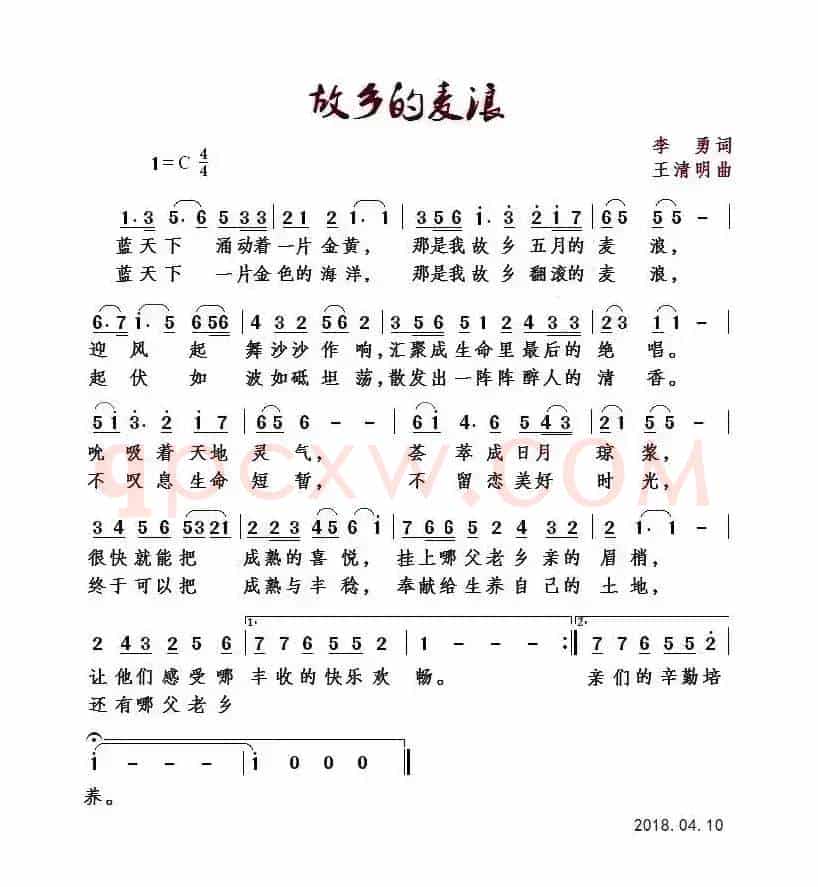 故乡的麦浪
1=C 4/4
李 勇词
王清明曲
1·3 5·6 5 3 3 | 2 1 2 1·1 | 3 5 6 i·3 2 i 7 | 6 5 5 5 - |
蓝天下 涌动着一片金黄, 那是我故乡五月的麦 浪,
蓝天下 一片金色的海洋, 那是我故乡翻滚的麦 浪,
6·7 i·5 6 5 6 | 4 3 2 5 6 2 | 3 5 6 5 1 2 4 3 3 | 2 3 1 1 - |
迎 风 起 舞沙沙作响,汇聚成生命里最后的绝 唱。
起 伏 如 波如砥坦荡,散发出一阵阵醉人的清 香。
5 i 3·2 i 7 | 6 5 6 - - | 6 i 4·6 5 4 3 | 2 1 5 5 - |
吮吸着天地灵气, 荟萃成日月 琼浆,
不叹息生命短暂, 不留恋美好 时光,
qpcxw.com
3 4 5 6 5 3 2 1 | 2 2 3 4 5 6 i | 7 6 6 5 2 4 3 2 | 2 1·1 - |
很快就能把 成熟的喜悦, 挂上哪父老乡亲的 眉梢,
终于可以把 成熟与丰稔, 奉献给生养自己的 土地,
2 4 3 2 5 6 | 1. 7 7 6 5 5 2 | 1 - - - :| 2. 7 7 6 5 5 2 |
让他们感受哪 丰收的快乐欢 畅。 亲们的辛勤培
还有哪父老乡
i - - - | i 0 0 0 ‖
养。
2018.04.10